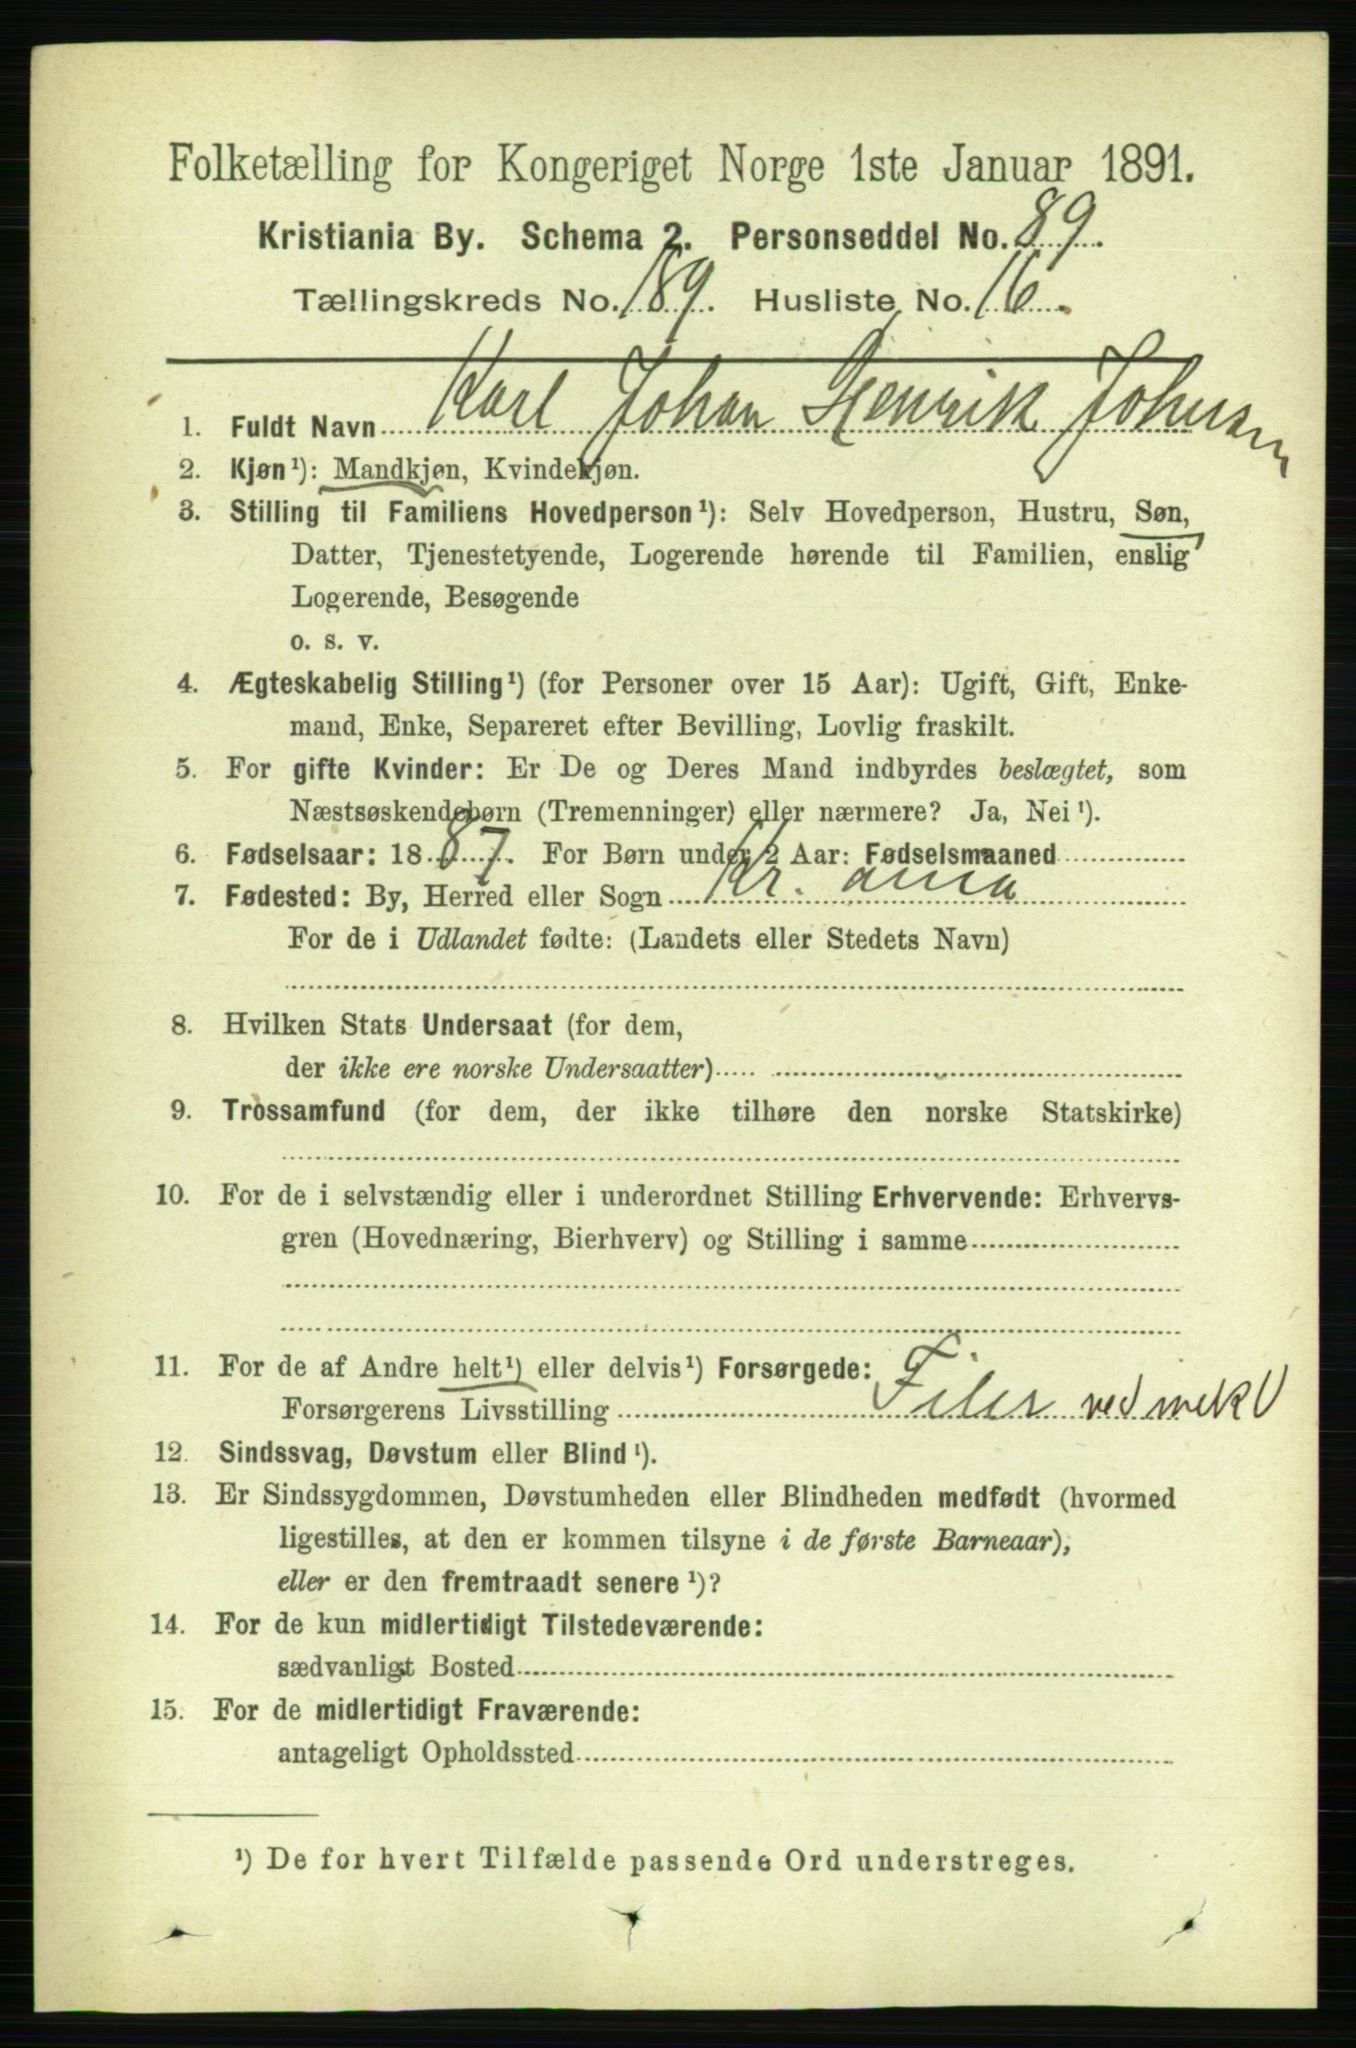 Folketælling for Kongeriget Norge 1ste Januar 1891.
Kristiania By. Schema 2. Personseddel No. 89.
Tællingskreds No. 189. Husliste No. 16.
1. Fuldt Navn Karl Johan Henrik Johnsen
2. Kjøn¹): Mandkjøn, Kvindekjøn.
3. Stilling til Familiens Hovedperson¹): Selv Hovedperson, Hustru, Søn,
Datter, Tjenestetyende, Logerende hørende til Familien, enslig
Logerende, Besøgende
o. s. v.
4. Ægteskabelig Stilling¹) (for Personer over 15 Aar): Ugift, Gift, Enke-
mand, Enke, Separeret efter Bevilling, Lovlig fraskilt.
5. For gifte Kvinder: Er De og Deres Mand indbyrdes beslægtet, som
Næstsøskendebørn (Tremenninger) eller nærmere? Ja, Nei¹).
6. Fødselsaar: 1887. For Børn under 2 Aar: Fødselsmaaned
7. Fødested: By, Herred eller Sogn Kr. ania
For de i Udlandet fødte: (Landets eller Stedets Navn)
8. Hvilken Stats Undersaat (for dem,
der ikke ere norske Undersaatter)
9. Trossamfund (for dem, der ikke tilhøre den norske Statskirke)
10. For de i selvstændig eller i underordnet Stilling Erhvervende: Erhvervs-
gren (Hovednæring, Bierhverv) og Stilling i samme
11. For de af Andre helt¹) eller delvis¹) Forsørgede:
Forsørgerens Livsstilling Filer ved mek V
12. Sindssvag, Døvstum eller Blind¹).
13. Er Sindssygdommen, Døvstumheden eller Blindheden medfødt (hvormed
ligestilles, at den er kommen tilsyne i de første Barneaar),
eller er den fremtraadt senere¹)?
14. For de kun midlertidigt Tilstedeværende:
sædvanligt Bosted
15. For de midlertidigt Fraværende:
antageligt Opholdssted
¹) De for hvert Tilfælde passende Ord understreges.